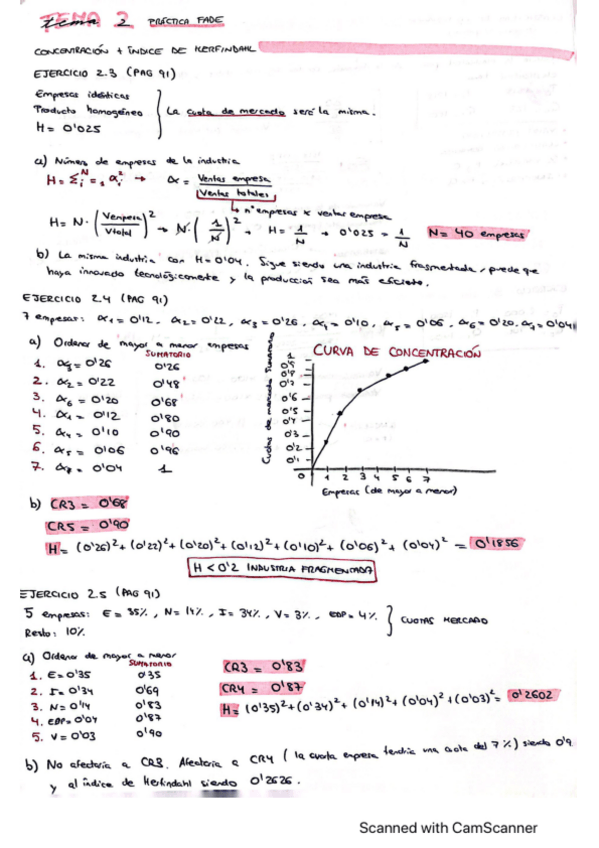 TEMA 2 PRÁCTICA FADE
CONCENTRACIÓN + ÍNDICE DE HERFINDAHL
EJERCICIO 2.3 (PAG 91)
Empresas idénticas
Producto homogéneo
H = 0'025
La cuota de mercado será la misma.
a) Número de empresas de la industria
H = Σᵢᴺ=₁ αᵢ² → α = Ventas empresa / Ventas totales
↳ nº empresas x ventas empresa
H = N · (Vempresa / Vtotal)² → N · (1/N)², H = 1/N → 0'025 = 1/N N = 40 empresas
b) La misma industria con H = 0'04. Sigue siendo una industria fragmentada, puede que
haya innovado tecnológicamente y la producción sea más eficiente.
EJERCICIO 2.4 (PAG 91)
7 empresas: α1 = 0'12, α2 = 0'22, α3 = 0'26, α4 = 0'10, α5 = 0'06, α6 = 0'20, α7 = 0'04
a) Ordenar de mayor a menor empresas
SUMATORIO
1. α3 = 0'26 0'26
2. α2 = 0'22 0'48
3. α6 = 0'20 0'68
4. α1 = 0'12 0'80
5. α4 = 0'10 0'90
6. α5 = 0'06 0'96
7. α7 = 0'04 1
CURVA DE CONCENTRACIÓN
Cuotas de mercado sumatorio
1
0'9
0'8
0'7
0'6
0'5
0'4
0'3
0'2
0'1
0 1 2 3 4 5 6 7
Empresas (de mayor a menor)
b) CR3 = 0'68
CR5 = 0'90
H = (0'26)² + (0'22)² + (0'20)² + (0'12)² + (0'10)² + (0'06)² + (0'04)² = 0'1856
H < 0'2 INDUSTRIA FRAGMENTADA
EJERCICIO 2.5 (PAG 91)
5 empresas: E = 35%, N = 14%, I = 34%, V = 3%, EDP = 4% } CUOTAS MERCADO
Resto: 10%
a) Ordenar de mayor a menor
SUMATORIO
1. E = 0'35 0'35
2. I = 0'34 0'69
3. N = 0'14 0'83
4. EDP = 0'04 0'87
5. V = 0'03 0'90
CR3 = 0'83
CR4 = 0'87
H = (0'35)² + (0'34)² + (0'14)² + (0'04)² + (0'03)² = 0'2602
b) No afectaría a CR3. Afectaría a CR4 (la cuarta empresa tendría una cuota del 7%) siendo 0'9
y al índice de Herfindahl siendo 0'2626.
Scanned with CamScanner